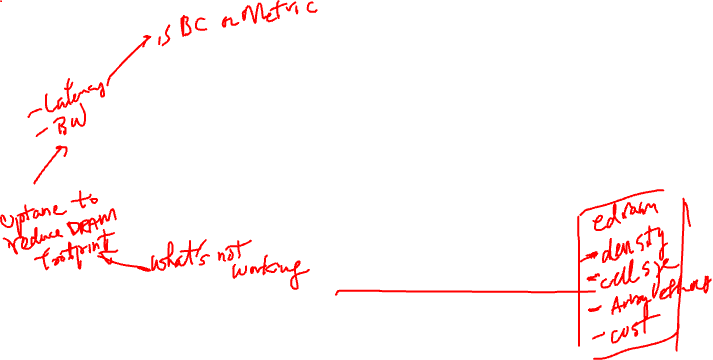 is BC or Metric
- Latency
- BW
Optane to
reduce DRAM
footprint
What's not
working
edram
- density
- cell size
- Array
- cost